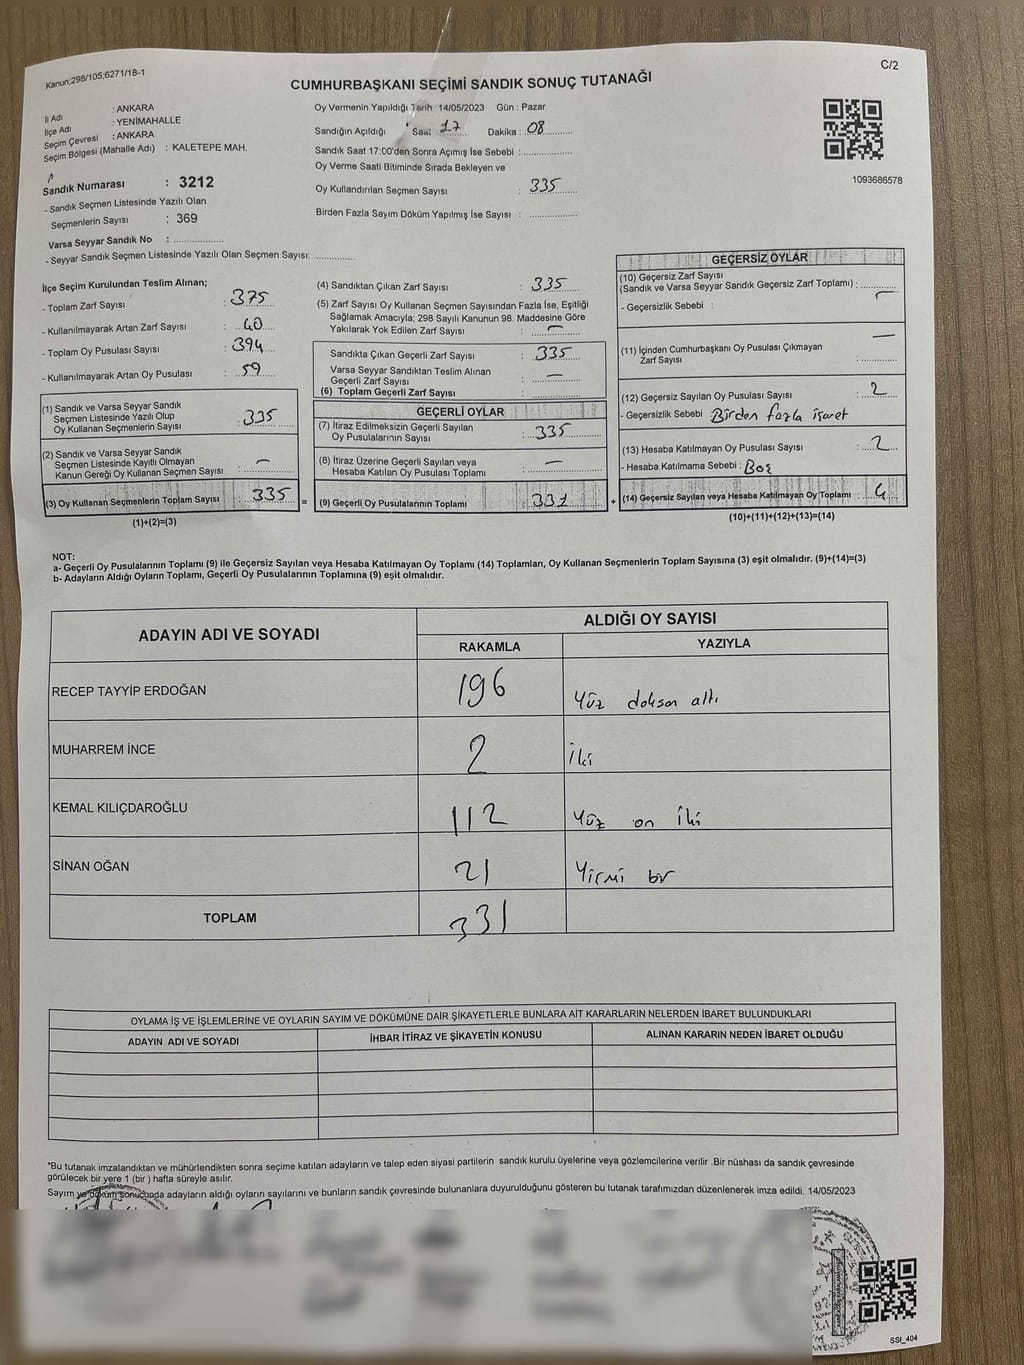 Kanun:298/105;6271/18-1
C/2
CUMHURBAŞKANI SEÇİMİ SANDIK SONUÇ TUTANAĞI
İl Adı : ANKARA
İlçe Adı : YENİMAHALLE
Seçim Çevresi : ANKARA
Seçim Bölgesi (Mahalle Adı) : KALETEPE MAH.
Sandık Numarası : 3212
- Sandık Seçmen Listesinde Yazılı Olan
Seçmenlerin Sayısı : 369
Varsa Seyyar Sandık No : ....................
- Seyyar Sandık Seçmen Listesinde Yazılı Olan Seçmen Sayısı: ..............
Oy Vermenin Yapıldığı Tarih : 14/05/2023 Gün : Pazar
Sandığın Açıldığı Saat 17 Dakika : 08
Sandık Saat 17:00'den Sonra Açımış İse Sebebi : ....................
Oy Verme Saati Bitiminde Sırada Bekleyen ve
Oy Kullandırılan Seçmen Sayısı : 335
Birden Fazla Sayım Döküm Yapılmış İse Sayısı : ....................
1093686578
İlçe Seçim Kurulundan Teslim Alınan;
- Toplam Zarf Sayısı : 375
- Kullanılmayarak Artan Zarf Sayısı : 40
- Toplam Oy Pusulası Sayısı : 394
- Kullanılmayarak Artan Oy Pusulası : 59
(1) Sandık ve Varsa Seyyar Sandık
Seçmen Listesinde Yazılı Olup
Oy Kullanan Seçmenlerin Sayısı : 335
(2) Sandık ve Varsa Seyyar Sandık
Seçmen Listesinde Kayıtlı Olmayan
Kanun Gereği Oy Kullanan Seçmen Sayısı : –
(3) Oy Kullanan Seçmenlerin Toplam Sayısı : 335 =
(1)+(2)=(3)
(4) Sandıktan Çıkan Zarf Sayısı : 335
(5) Zarf Sayısı Oy Kullanan Seçmen Sayısından Fazla İse, Eşitliği
Sağlamak Amacıyla; 298 Sayılı Kanunun 98. Maddesine Göre
Yakılarak Yok Edilen Zarf Sayısı : –
Sandıkta Çıkan Geçerli Zarf Sayısı : 335
Varsa Seyyar Sandıktan Teslim Alınan
Geçerli Zarf Sayısı : –
(6) Toplam Geçerli Zarf Sayısı : ....................
GEÇERLİ OYLAR
(7) İtiraz Edilmeksizin Geçerli Sayılan
Oy Pusulalarının Sayısı : 335
(8) İtiraz Üzerine Geçerli Sayılan veya
Hesaba Katılan Oy Pusulası Toplamı : –
(9) Geçerli Oy Pusulalarının Toplamı : 331 +
GEÇERSİZ OYLAR
(10) Geçersiz Zarf Sayısı
(Sandık ve Varsa Seyyar Sandık Geçersiz Zarf Toplamı) : –
- Geçersizlik Sebebi :
(11) İçinden Cumhurbaşkanı Oy Pusulası Çıkmayan
Zarf Sayısı : –
(12) Geçersiz Sayılan Oy Pusulası Sayısı : 2
- Geçersizlik Sebebi Birden fazla işaret
(13) Hesaba Katılmayan Oy Pusulası Sayısı : 2
- Hesaba Katılmama Sebebi : Boş
(14) Geçersiz Sayılan veya Hesaba Katılmayan Oy Toplamı : 4
(10)+(11)+(12)+(13)=(14)
NOT:
a- Geçerli Oy Pusulalarının Toplamı (9) ile Geçersiz Sayılan veya Hesaba Katılmayan Oy Toplamı (14) Toplamları, Oy Kullanan Seçmenlerin Toplam Sayısına (3) eşit olmalıdır. (9)+(14)=(3)
b- Adayların Aldığı Oyların Toplamı, Geçerli Oy Pusulalarının Toplamına (9) eşit olmalıdır.
ADAYIN ADI VE SOYADI
ALDIĞI OY SAYISI
RAKAMLA YAZIYLA
RECEP TAYYİP ERDOĞAN 196 Yüz doksan altı
MUHARREM İNCE 2 İki
KEMAL KILIÇDAROĞLU 112 Yüz on İki
SİNAN OĞAN 21 Yirmi bir
TOPLAM 331
OYLAMA İŞ VE İŞLEMLERİNE VE OYLARIN SAYIM VE DÖKÜMÜNE DAİR ŞİKAYETLERLE BUNLARA AİT KARARLARIN NELERDEN İBARET BULUNDUKLARI
ADAYIN ADI VE SOYADI İHBAR İTİRAZ VE ŞİKAYETİN KONUSU ALINAN KARARIN NEDEN İBARET OLDUĞU
*Bu tutanak imzalandıktan ve mühürlendikten sonra seçime katılan adayların ve talep eden siyasi partilerin sandık kurulu üyelerine veya gözlemcilerine verilir .Bir nüshası da sandık çevresinde
görülecek bir yere 1 (bir ) hafta süreyle asılır.
Sayım ve döküm sonucunda adayların aldığı oyların sayılarını ve bunların sandık çevresinde bulunanlara duyurulduğunu gösteren bu tutanak tarafımızdan düzenlenerek imza edildi. 14/05/2023
SSI_404